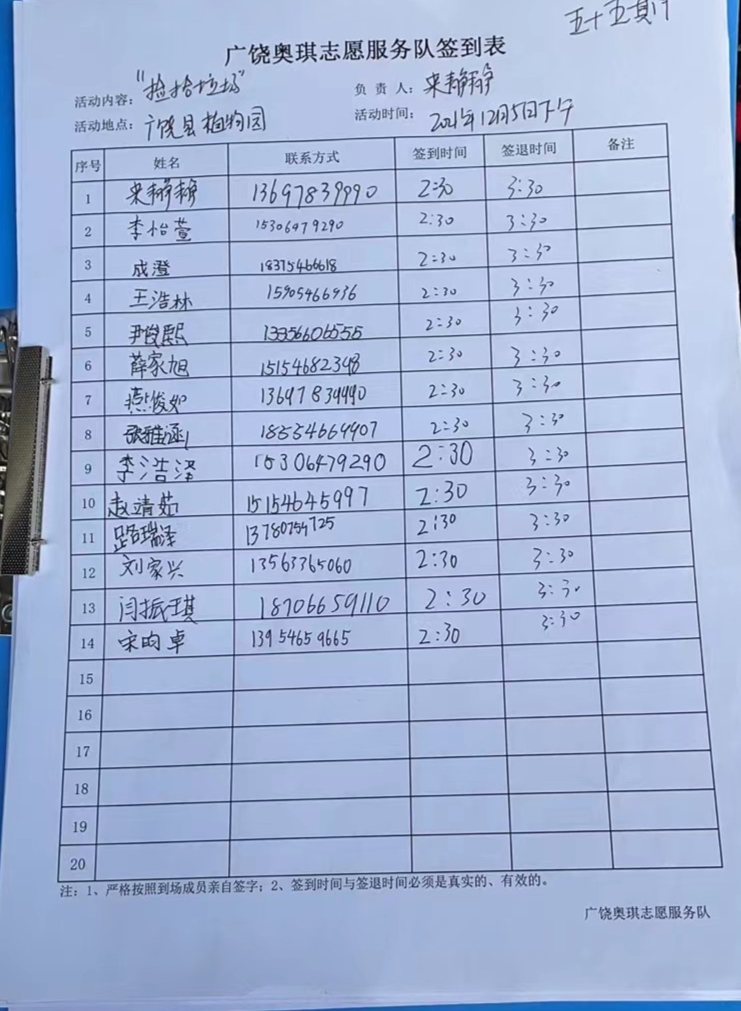 五十五期
广饶奥琪志愿服务队签到表
活动内容："捡拾垃圾" 负责人：宋静静
活动地点：广饶县植物园 活动时间：2021年12月5日下午
序号 姓名 联系方式 签到时间 签退时间 备注
1 宋静静 13697839990 2:30 3:30
2 李怡萱 15306479290 2:30 3:30
3 成澄 18375466618 2:30 3:30
4 王浩林 15905466936 2:30 3:30
5 尹俊熙 13356606555 2:30 3:30
6 薛家旭 15154682398 2:30 3:30
7 燕俊如 13697839990 2:30 3:30
8 张雅涵 18554669907 2:30 3:30
9 李浩泽 15306479290 2:30 3:30
10 赵靖茹 15154645997 2:30 3:30
11 路瑞泽 13780759725 2:30 3:30
12 刘家兴 13563365060 2:30 3:30
13 闫振琪 18706659110 2:30 3:30
14 宋昀卓 13954659665 2:30 3:30
15
16
17
18
19
20
注：1、严格按照到场成员亲自签字；2、签到时间与签退时间必须是真实的、有效的。
广饶奥琪志愿服务队